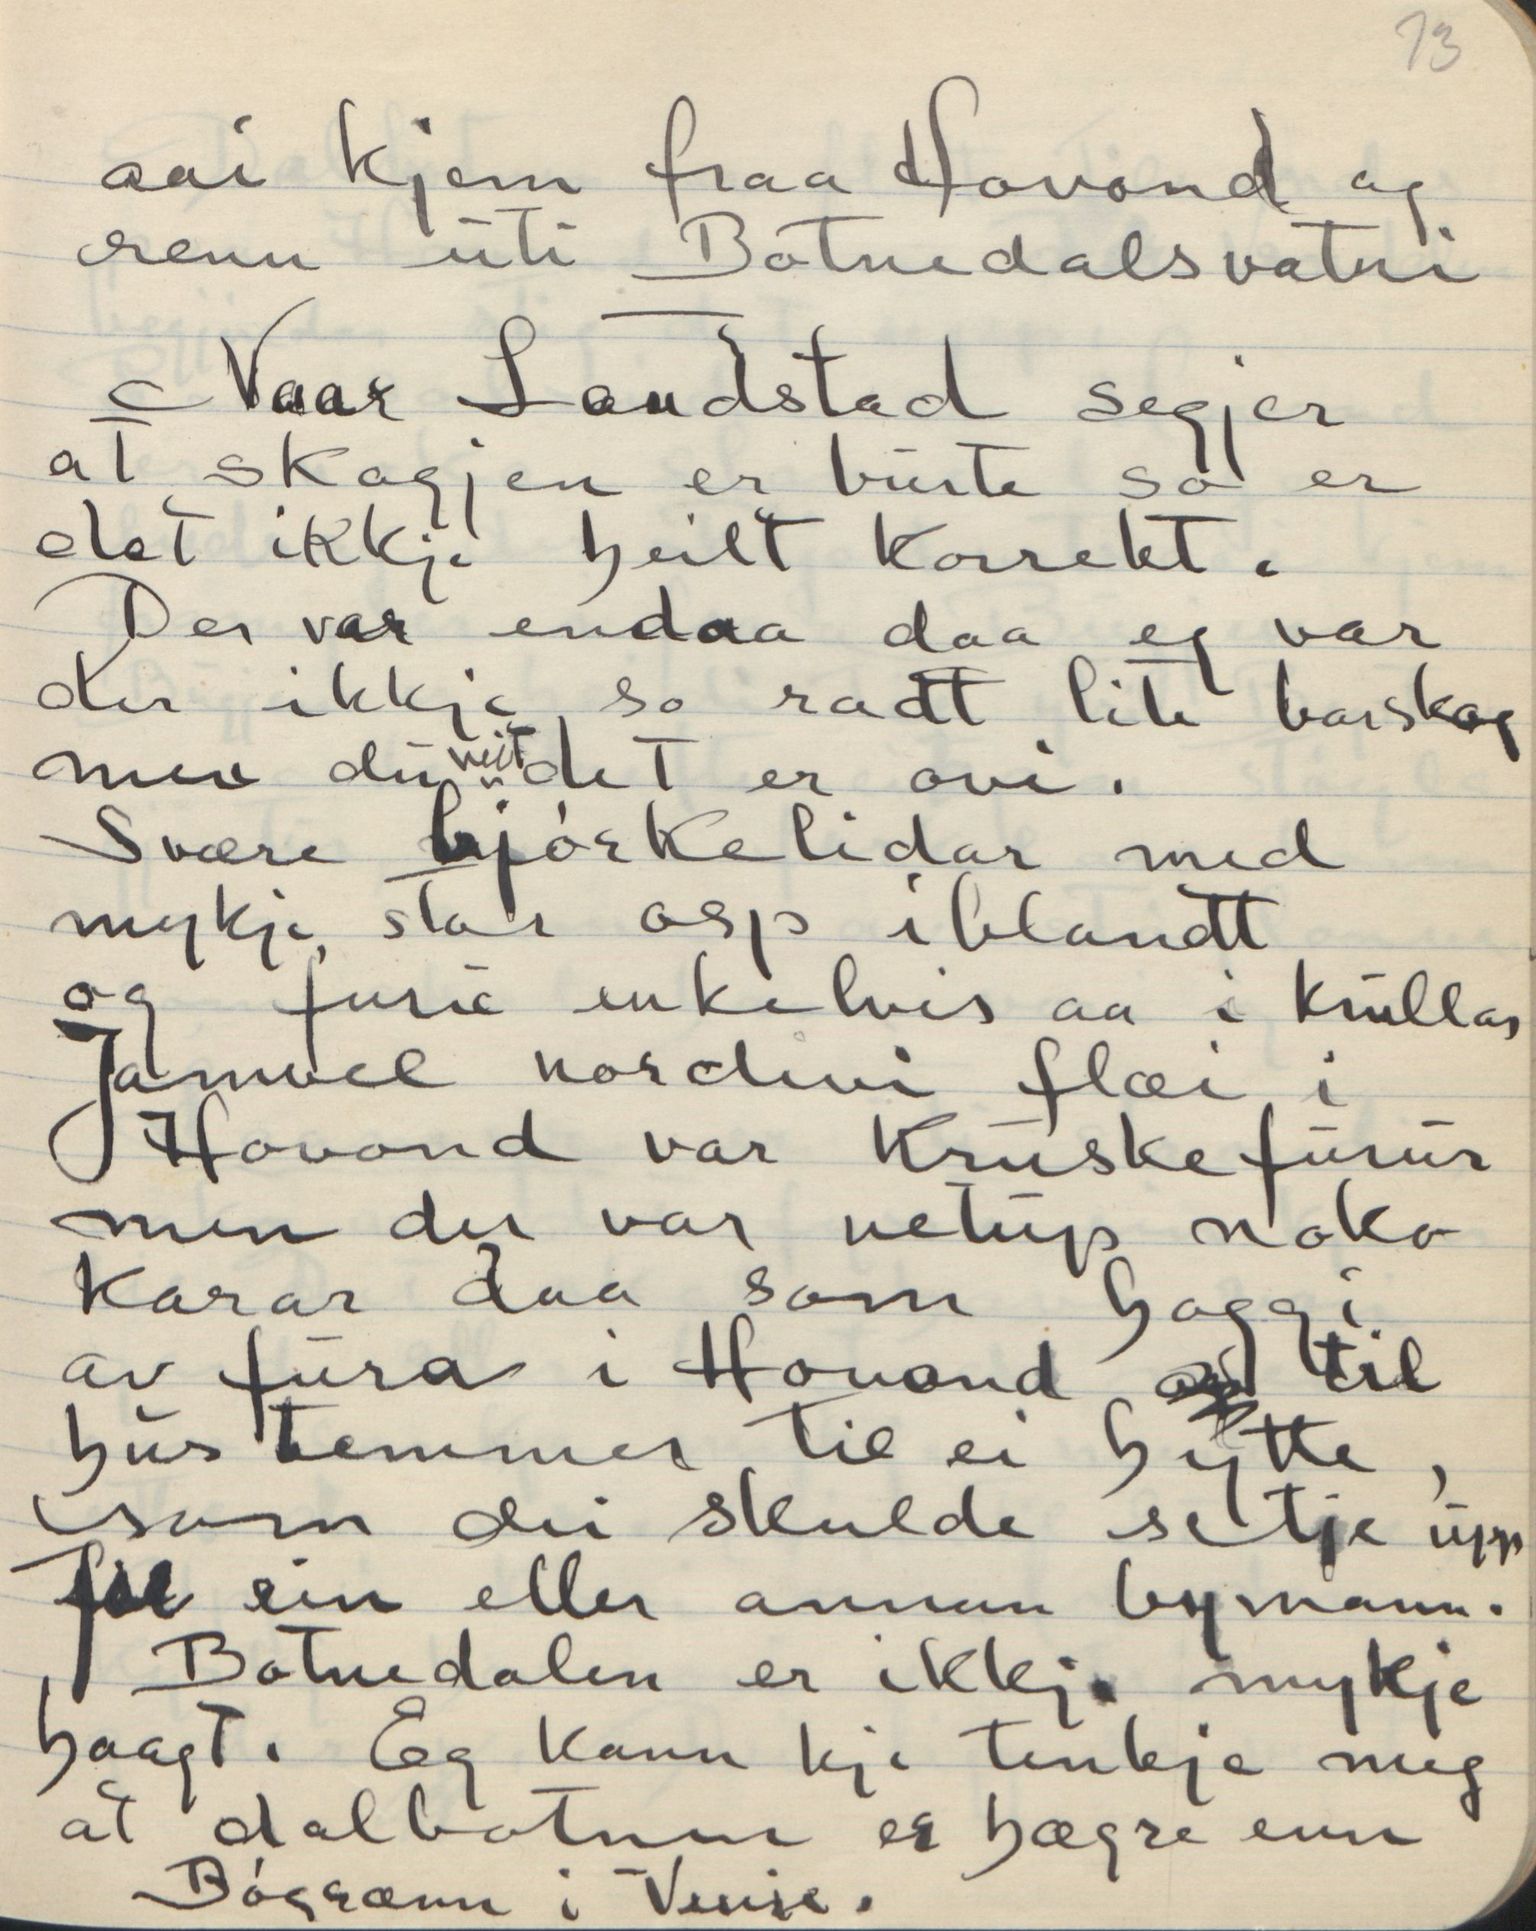 73
aai kjem fraa Hovond og
renn uti Botnedalsvatni
Naar Landstad segjer
at skogjen er burte so er
det ikkje heilt korrekt.
Der var endaa daa eg var
der ikkje so radt lite barskog
men du veit det er ovi.
Svære bjórkelidar med
mykje stor osp iblandt
og furie enkelvis aa i krullar
Jamvel nordivi flæi i
Hovond var kruskefurur
men der var netup noko
karar daa som hoggi
av fura i Hovond til
hustemmer til ei hytte,
som dei skulde setje upp
fil ein eller annan bymann.
Botnedalen er ikkje mykje
haagt. Eg kann kje tenkje meg
at dalbotnen er hægre enn
Bógrænn i Vinje.